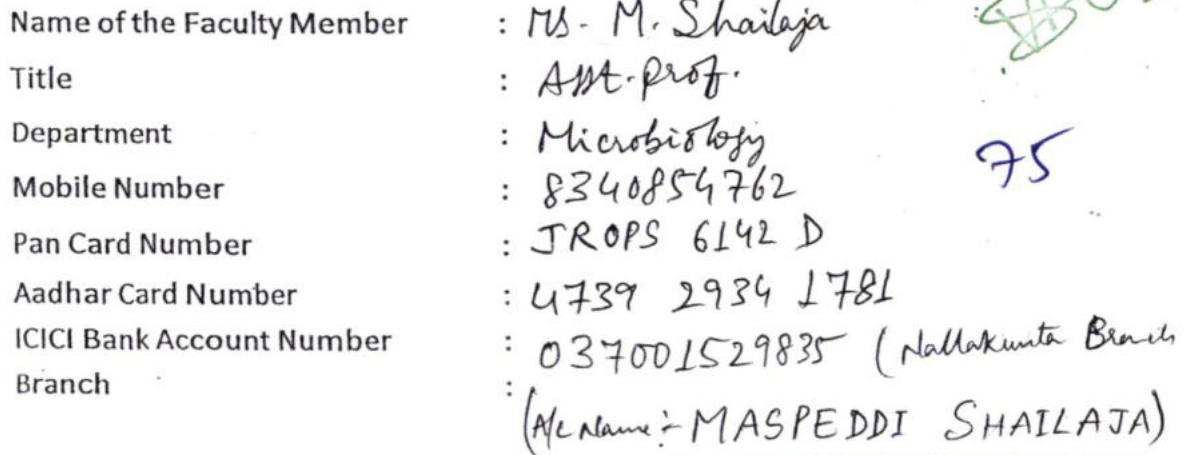 Name of the Faculty Member : Ms. M. Shailaja
Title : Asst. Prof.
Department : Microbiology
75
Mobile Number : 8340854762
Pan Card Number : JROPS 6142 D
Aadhar Card Number : 4739 2934 1781
ICICI Bank Account Number : 037001529835 (Nallakunta Branch
Branch :
(A/c Name :- MASPEDDI SHAILAJA)